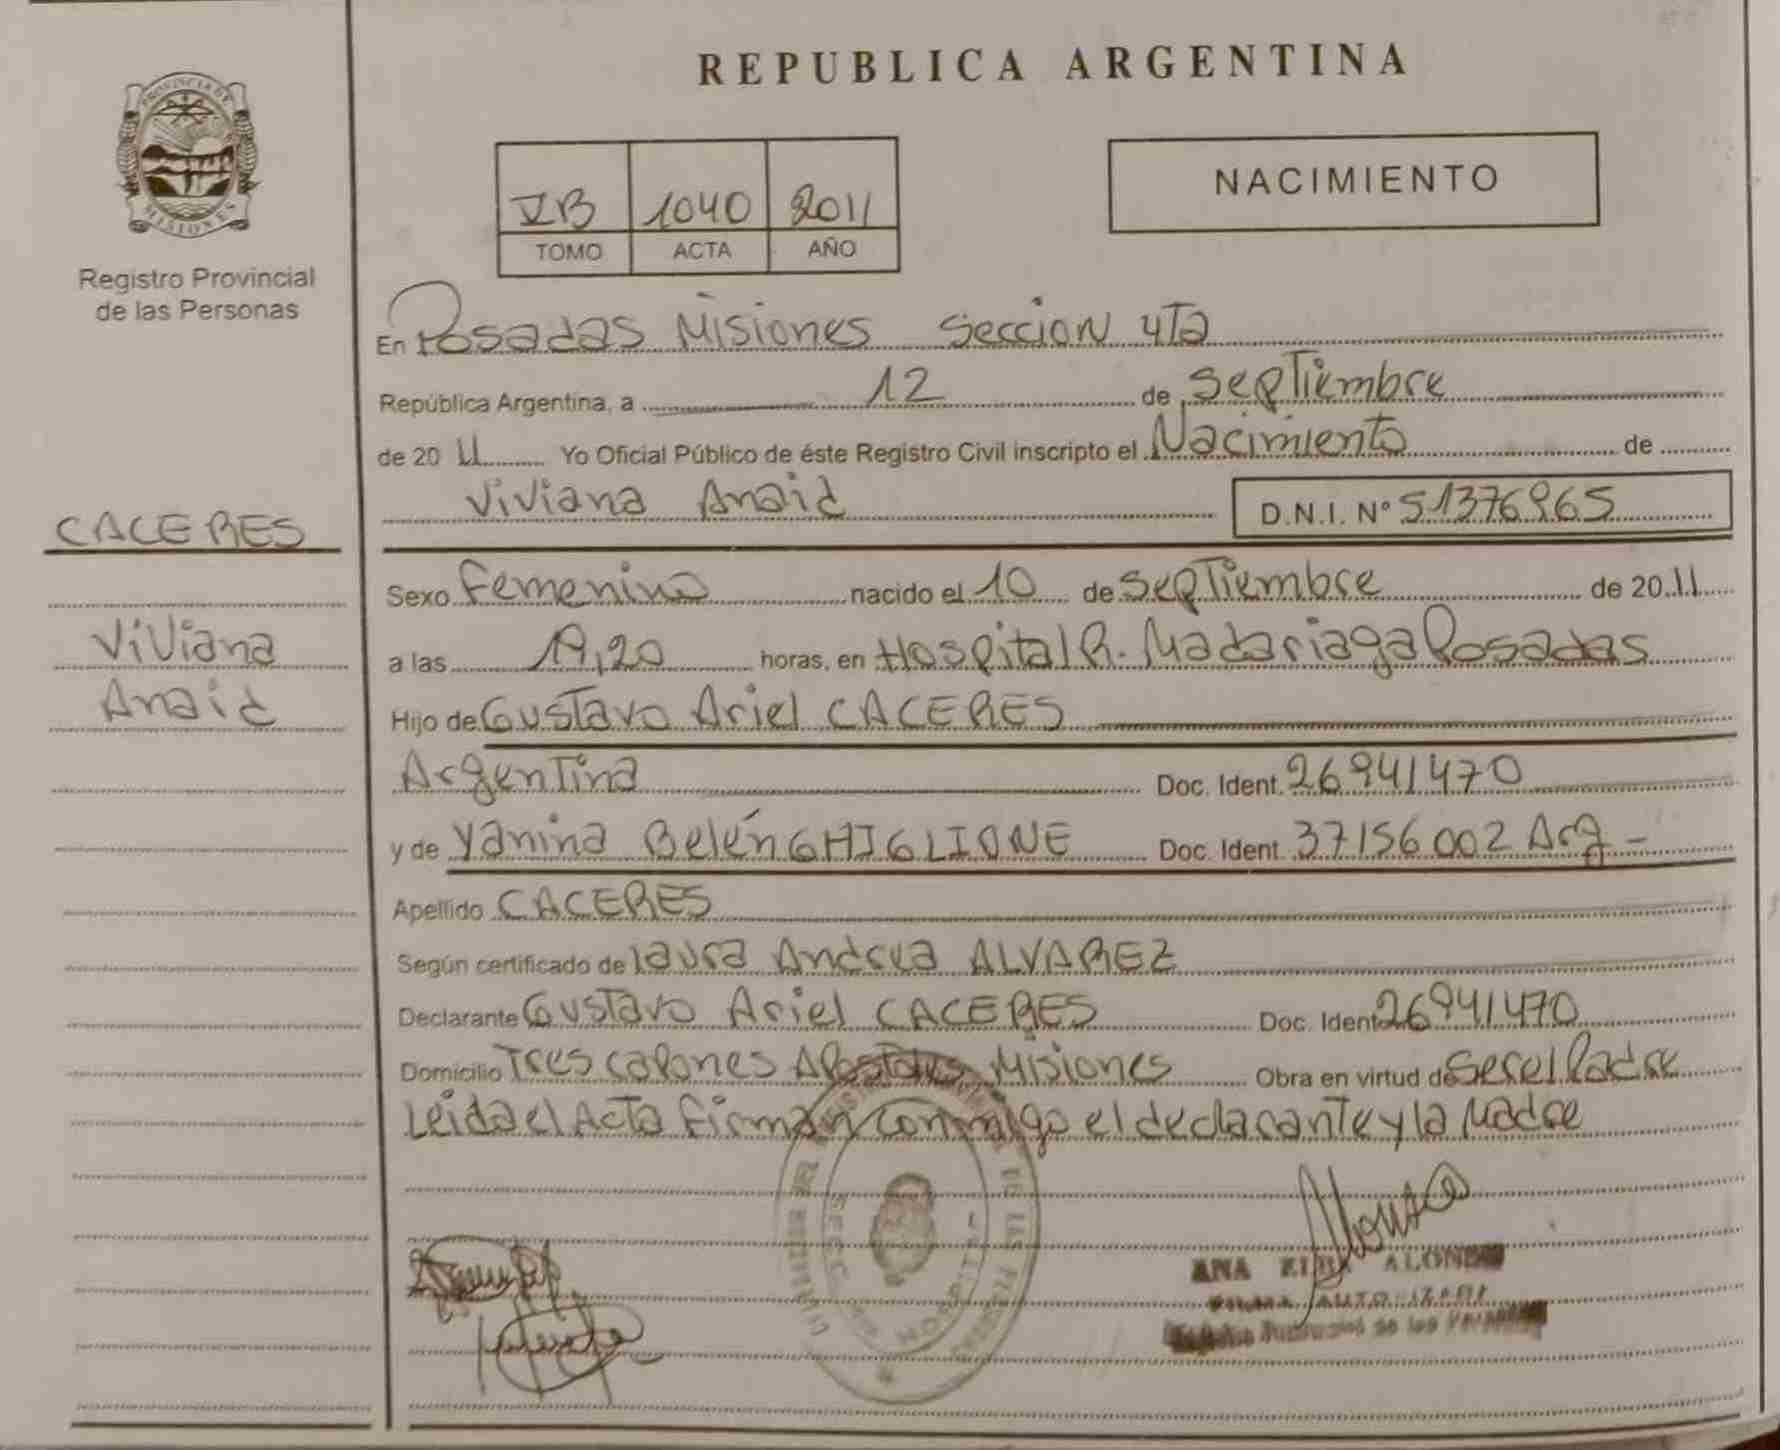 REPUBLICA ARGENTINA
PROVINCIA DE
MISIONES
Registro Provincial
de las Personas
VB 1040 2011
TOMO ACTA AÑO
NACIMIENTO
En Posadas Misiones Seccion 4Ta
República Argentina, a 12 de Septiembre
de 20 11 Yo Oficial Público de éste Registro Civil inscripto el Nacimiento de
Viviana Anaid D.N.I. Nº 51376965
CACERES
Viviana
Anaid
Sexo Femenino nacido el 10 de Septiembre de 20 11
a las horas, en Hospital R. Madariaga Posadas
Hijo de Gustavo Ariel CACERES
Argentina Doc. Ident. 26941470
y de Yanina Belén GHIGLIONE Doc. Ident. 37156002 Arg -
Apellido CACERES
Según certificado de Laura Andrea ALVAREZ
Declarante Gustavo Ariel CACERES Doc. Ident 26941470
Domicilio Tres Capones Apostoles Misiones Obra en virtud de Ser el Padre
Leida el Acta Firman conmigo el declarante y la Madre
ANA ALONSO